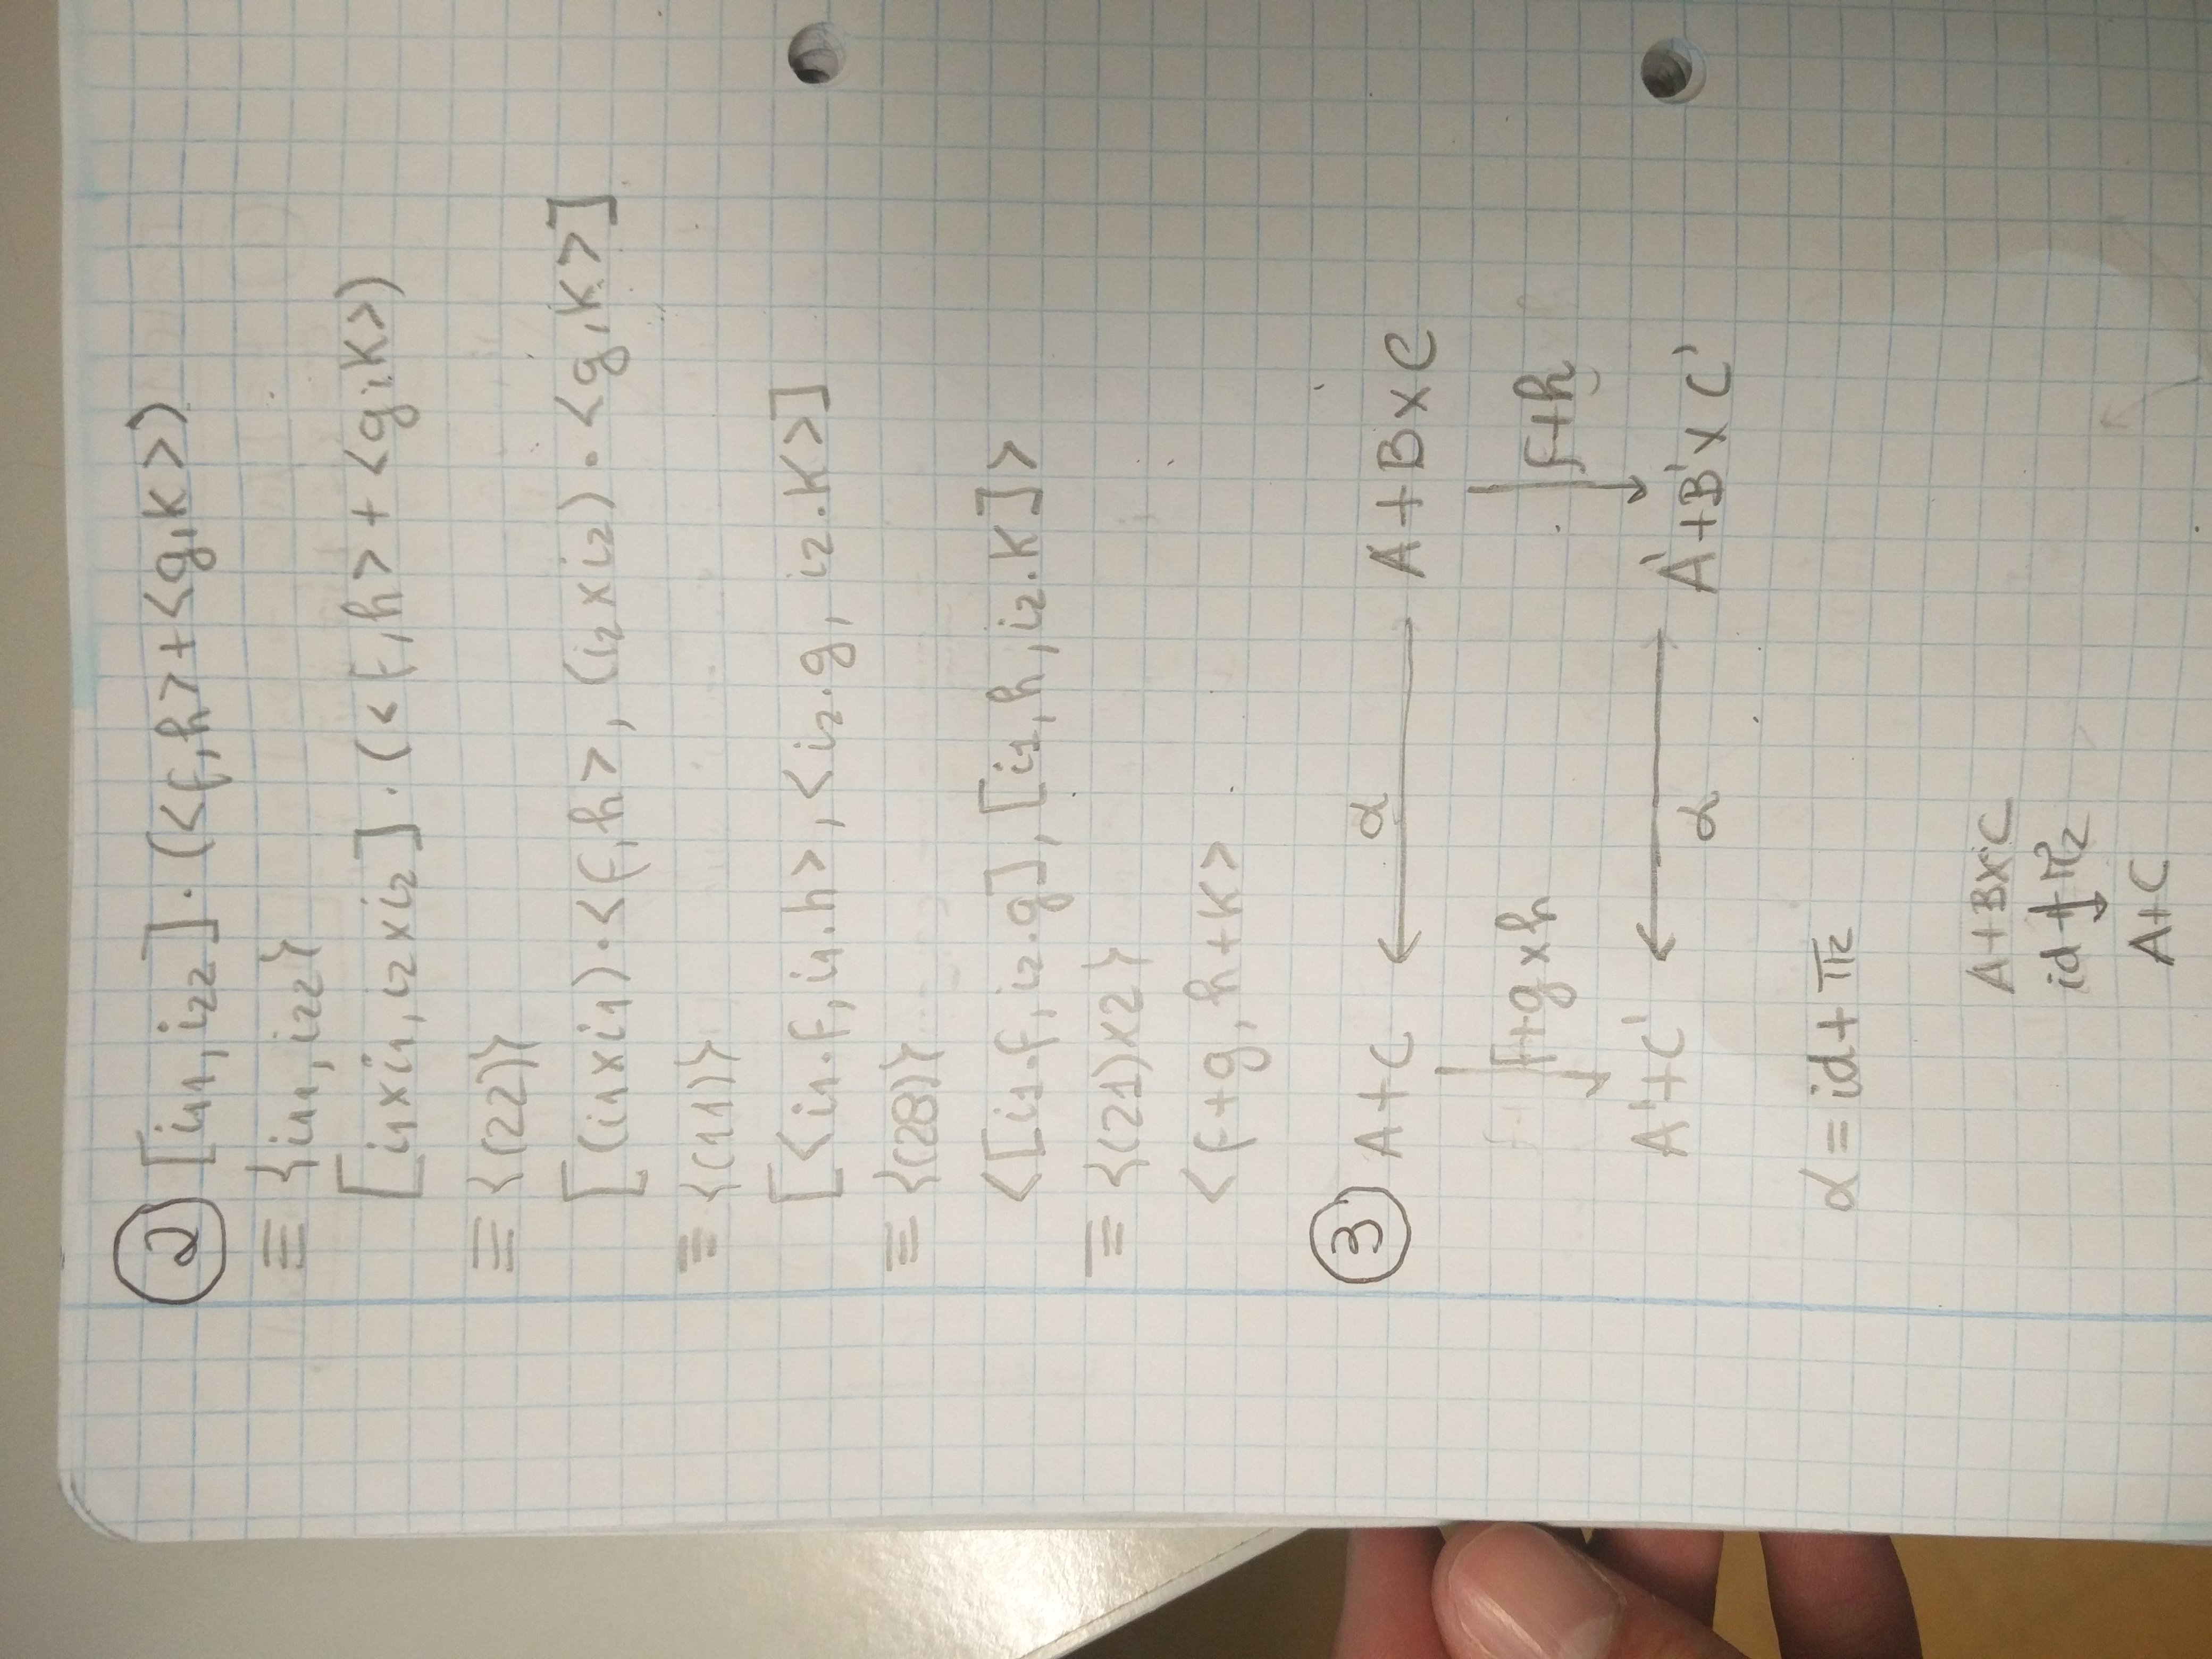 2 [i₁₁, i₂₂] · (<f, h> + <g, k>)
≡ {i₁₁, i₂₂}
[i₁×i₁, i₂×i₂] · (<f, h> + <g, k>)
≡ {(22)}
[(i₁×i₁)·<f, h>, (i₂×i₂)·<g, k>]
≡ {(11)}
[<i₁.f, i₁.h>, <i₂.g, i₂.k>]
≡ {(28)}
<[i₁.f, i₂.g], [i₁,h, i₂.k]>
≡ {(21)×2}
<f+g, h+k>
3 A+C ⟷ α A+B×C
f+g×h f+h
A'+C' ⟷ α A'+B'×C'
α = id + π₂
A+B×C
id + π₂
A+C